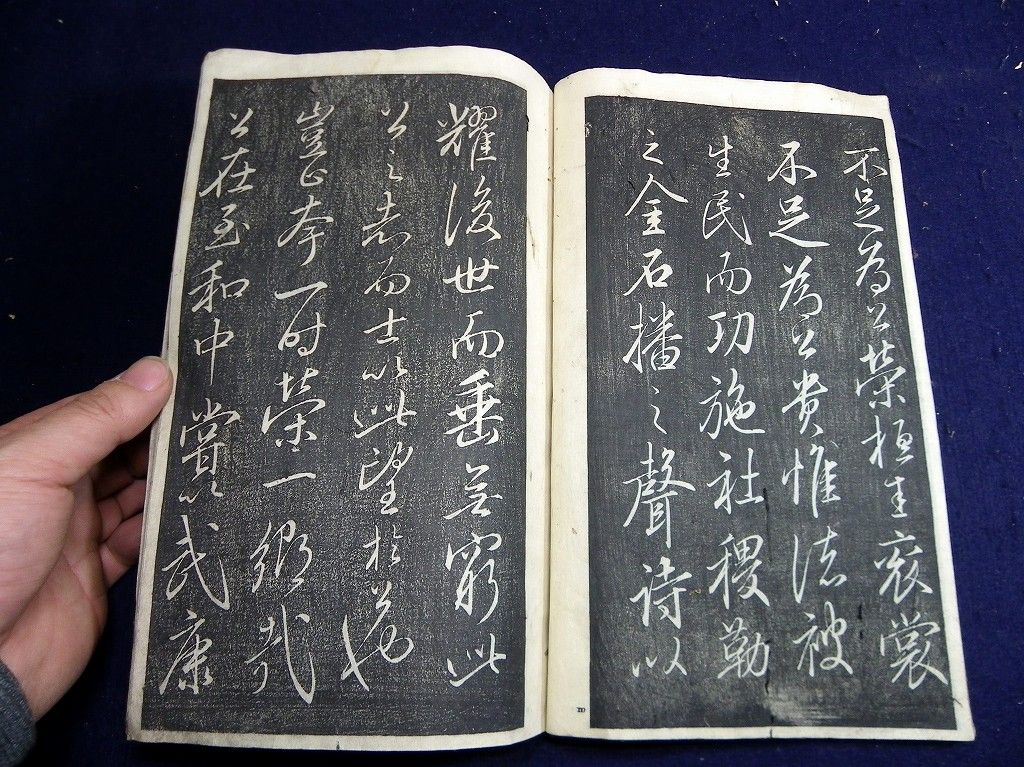 不足為公榮桓圭袞裳
不足為公貴惟德被
生民而功施社稷勒
之金石播之聲詩以
耀後世而垂無窮此
公之志而士以此望於公也
豈止夸一時榮一鄉哉
公在至和中嘗以武康